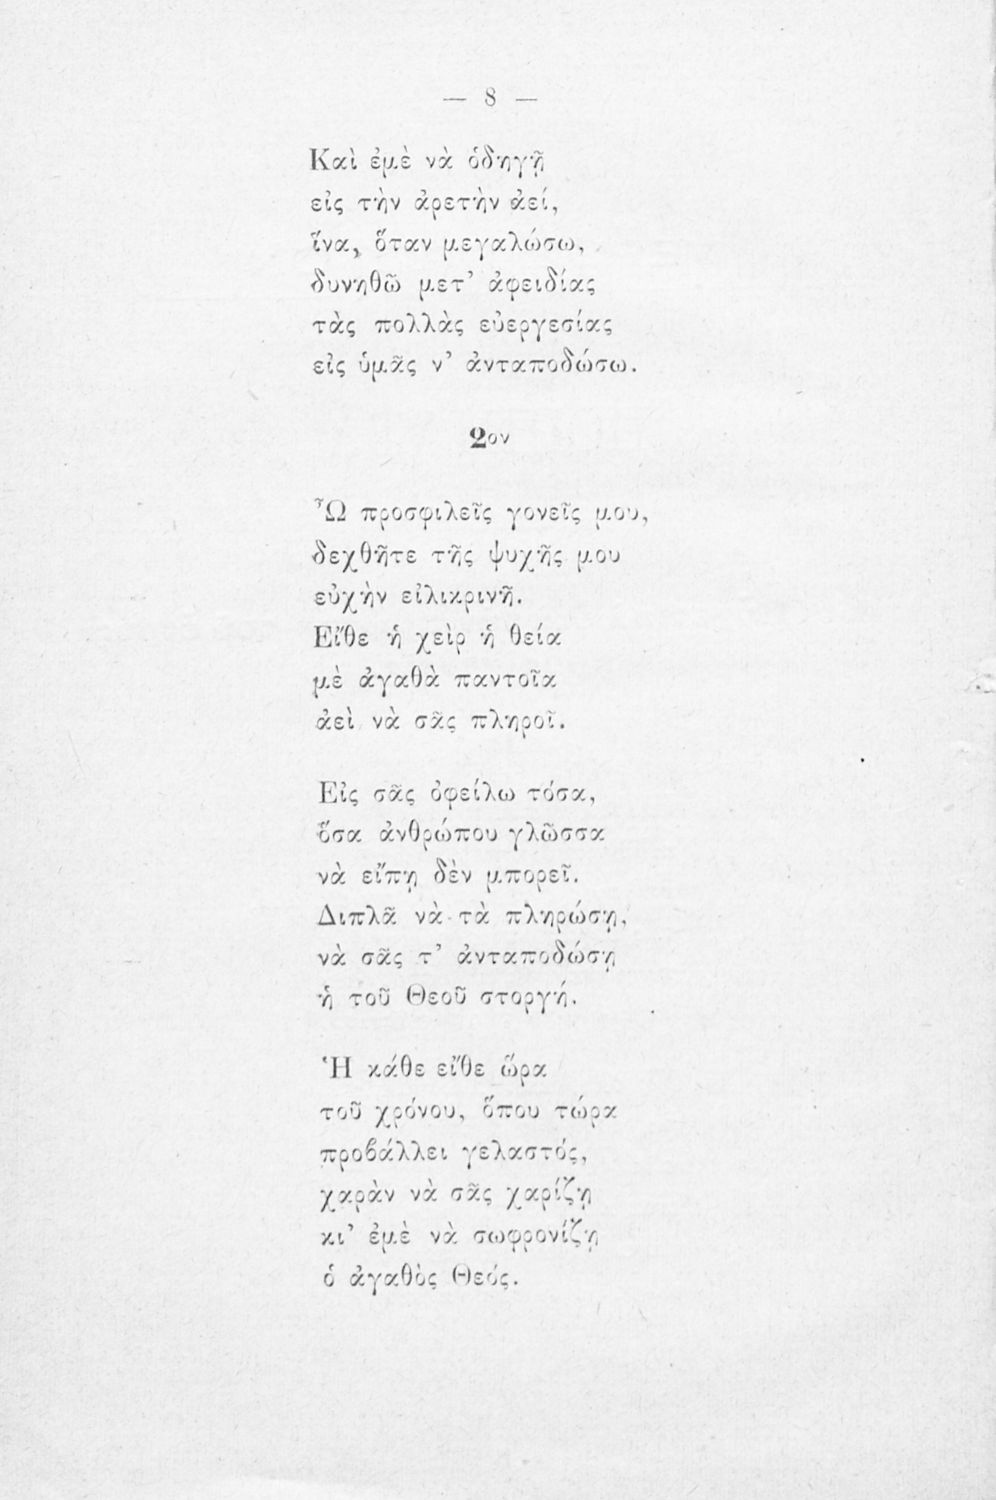 — 8 —
Καὶ ἐμὲ νὰ ὁδηγῇ
εἰς τὴν ἀρετὴν ἀεί,
ἵνα, ὅταν μεγαλώσω,
δυνηθῶ μετ’ ἀφειδίας
τὰς πολλὰς εὐεργεσίας
εἰς ὑμᾶς ν’ ἀνταποδώσω.
2ον
Ὦ προσφιλεῖς γονεῖς μου,
δεχθῆτε τῆς ψυχῆς μου
εὐχὴν εἰλικρινῆ.
Εἴθε ἡ χεὶρ ἡ θεία
μὲ ἀγαθὰ παντοῖα
ἀεὶ νὰ σᾶς πληροῖ.
Εἰς σᾶς ὀφείλω τόσα,
ὅσα ἀνθρώπου γλῶσσα
νὰ εἴπῃ δὲν μπορεῖ.
Διπλᾶ νὰ τὰ πληρώσῃ,
νὰ σᾶς τ’ ἀνταποδώσῃ
ἡ τοῦ Θεοῦ στοργή.
Ἡ κάθε εἴθε ὥρα
τοῦ χρόνου, ὅπου τώρα
προβάλλει γελαστός,
χαρὰν νὰ σᾶς χαρίζῃ
κι’ ἐμὲ νὰ σωφρονίζῃ
ὁ ἀγαθὸς Θεός.